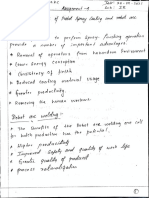 Assignment-4
of Robot Spray Coating and robot arc
to perform spray finishing operation
provide a number of important advantages.
• Removal of operators from hazardous Environment
• Lower Energy consumption
• Consistency of finish
• Reduced coating material usage
• Greater productivity
• Reducing the human workout.
Robot arc welding:-
• The benefits of the Robot arc welding are
both production
• Higher productivity
• Improved safety and quality of work life
• Greater quality of product
• Process rationalization